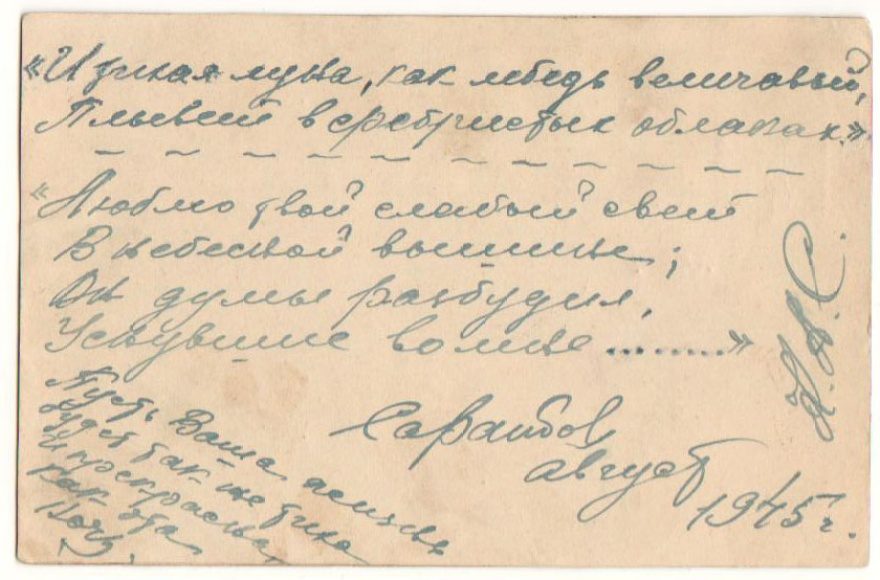 «И тихая луна, как лебедь величавый,
Плывет в серебристых облаках.»
«Люблю твой слабый свет
В небесной вышине;
Он думы разбудил,
Уснувшие во мне ..........»
Саратов
август
1945 г.
Пусть Ваша жизнь
будет так-же тиха
и прекрасна,
как эта
ночь.